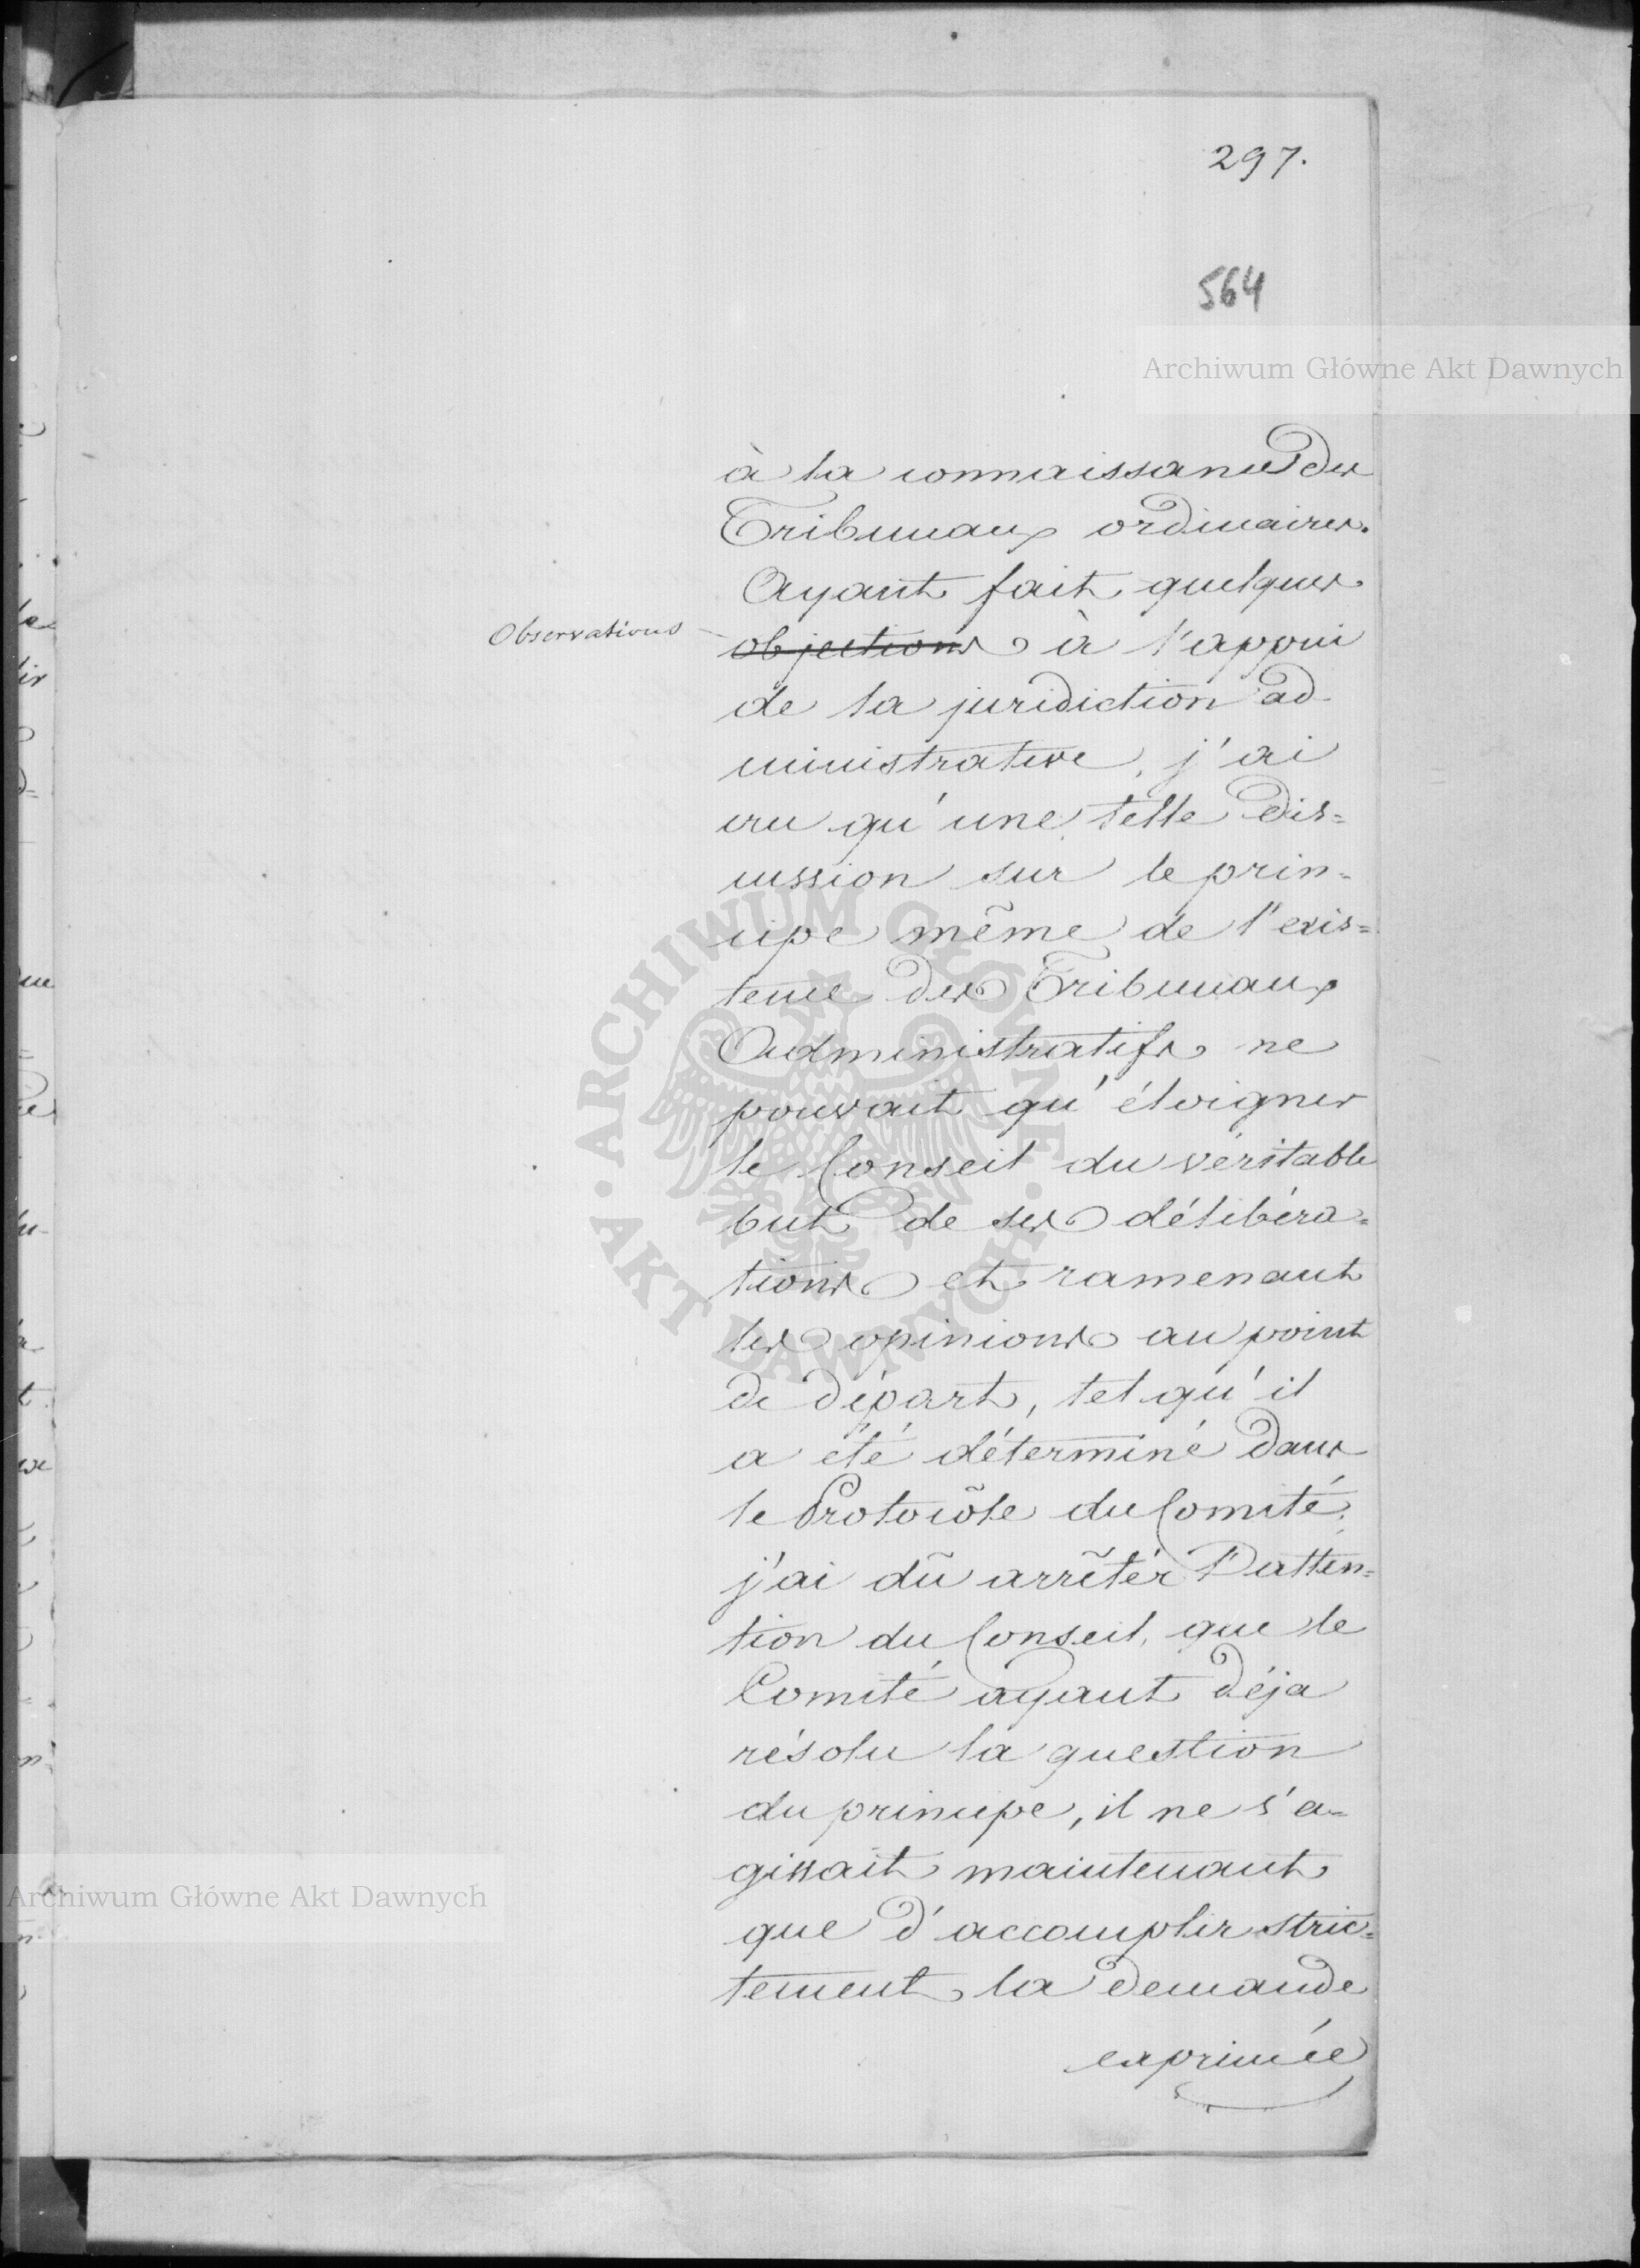 297.
564
Archiwum Główne Akt Dawnych
à la connaissance des
Tribunaux ordinaires.
Ayant fait quelques
Observations
objections à l'appui
de la juridiction ad-
ministrative, j'ai
cru qu'une telle dis=
cussion sur le prin=
cipe même de l'exis=
tence des Tribunaux
Administratifs ne
pouvait qu'éloigner
le Conseil du véritable
but de ses délibéra=
tions et ramenant
les opinions au point
de départ, tel qu'il
a été déterminé dans
le Protocôle du Comité,
j'ai dû arrêtér l'atten=
tion du Conseil, que le
Comité ayant déja
résolu la question
du principe, il ne s'a=
gissait maintenant
que d'accomplir stric=
tement la demande
exprimée
ARCHIWUM GŁÓWNE
AKT DAWNYCH
Archiwum Główne Akt Dawnych